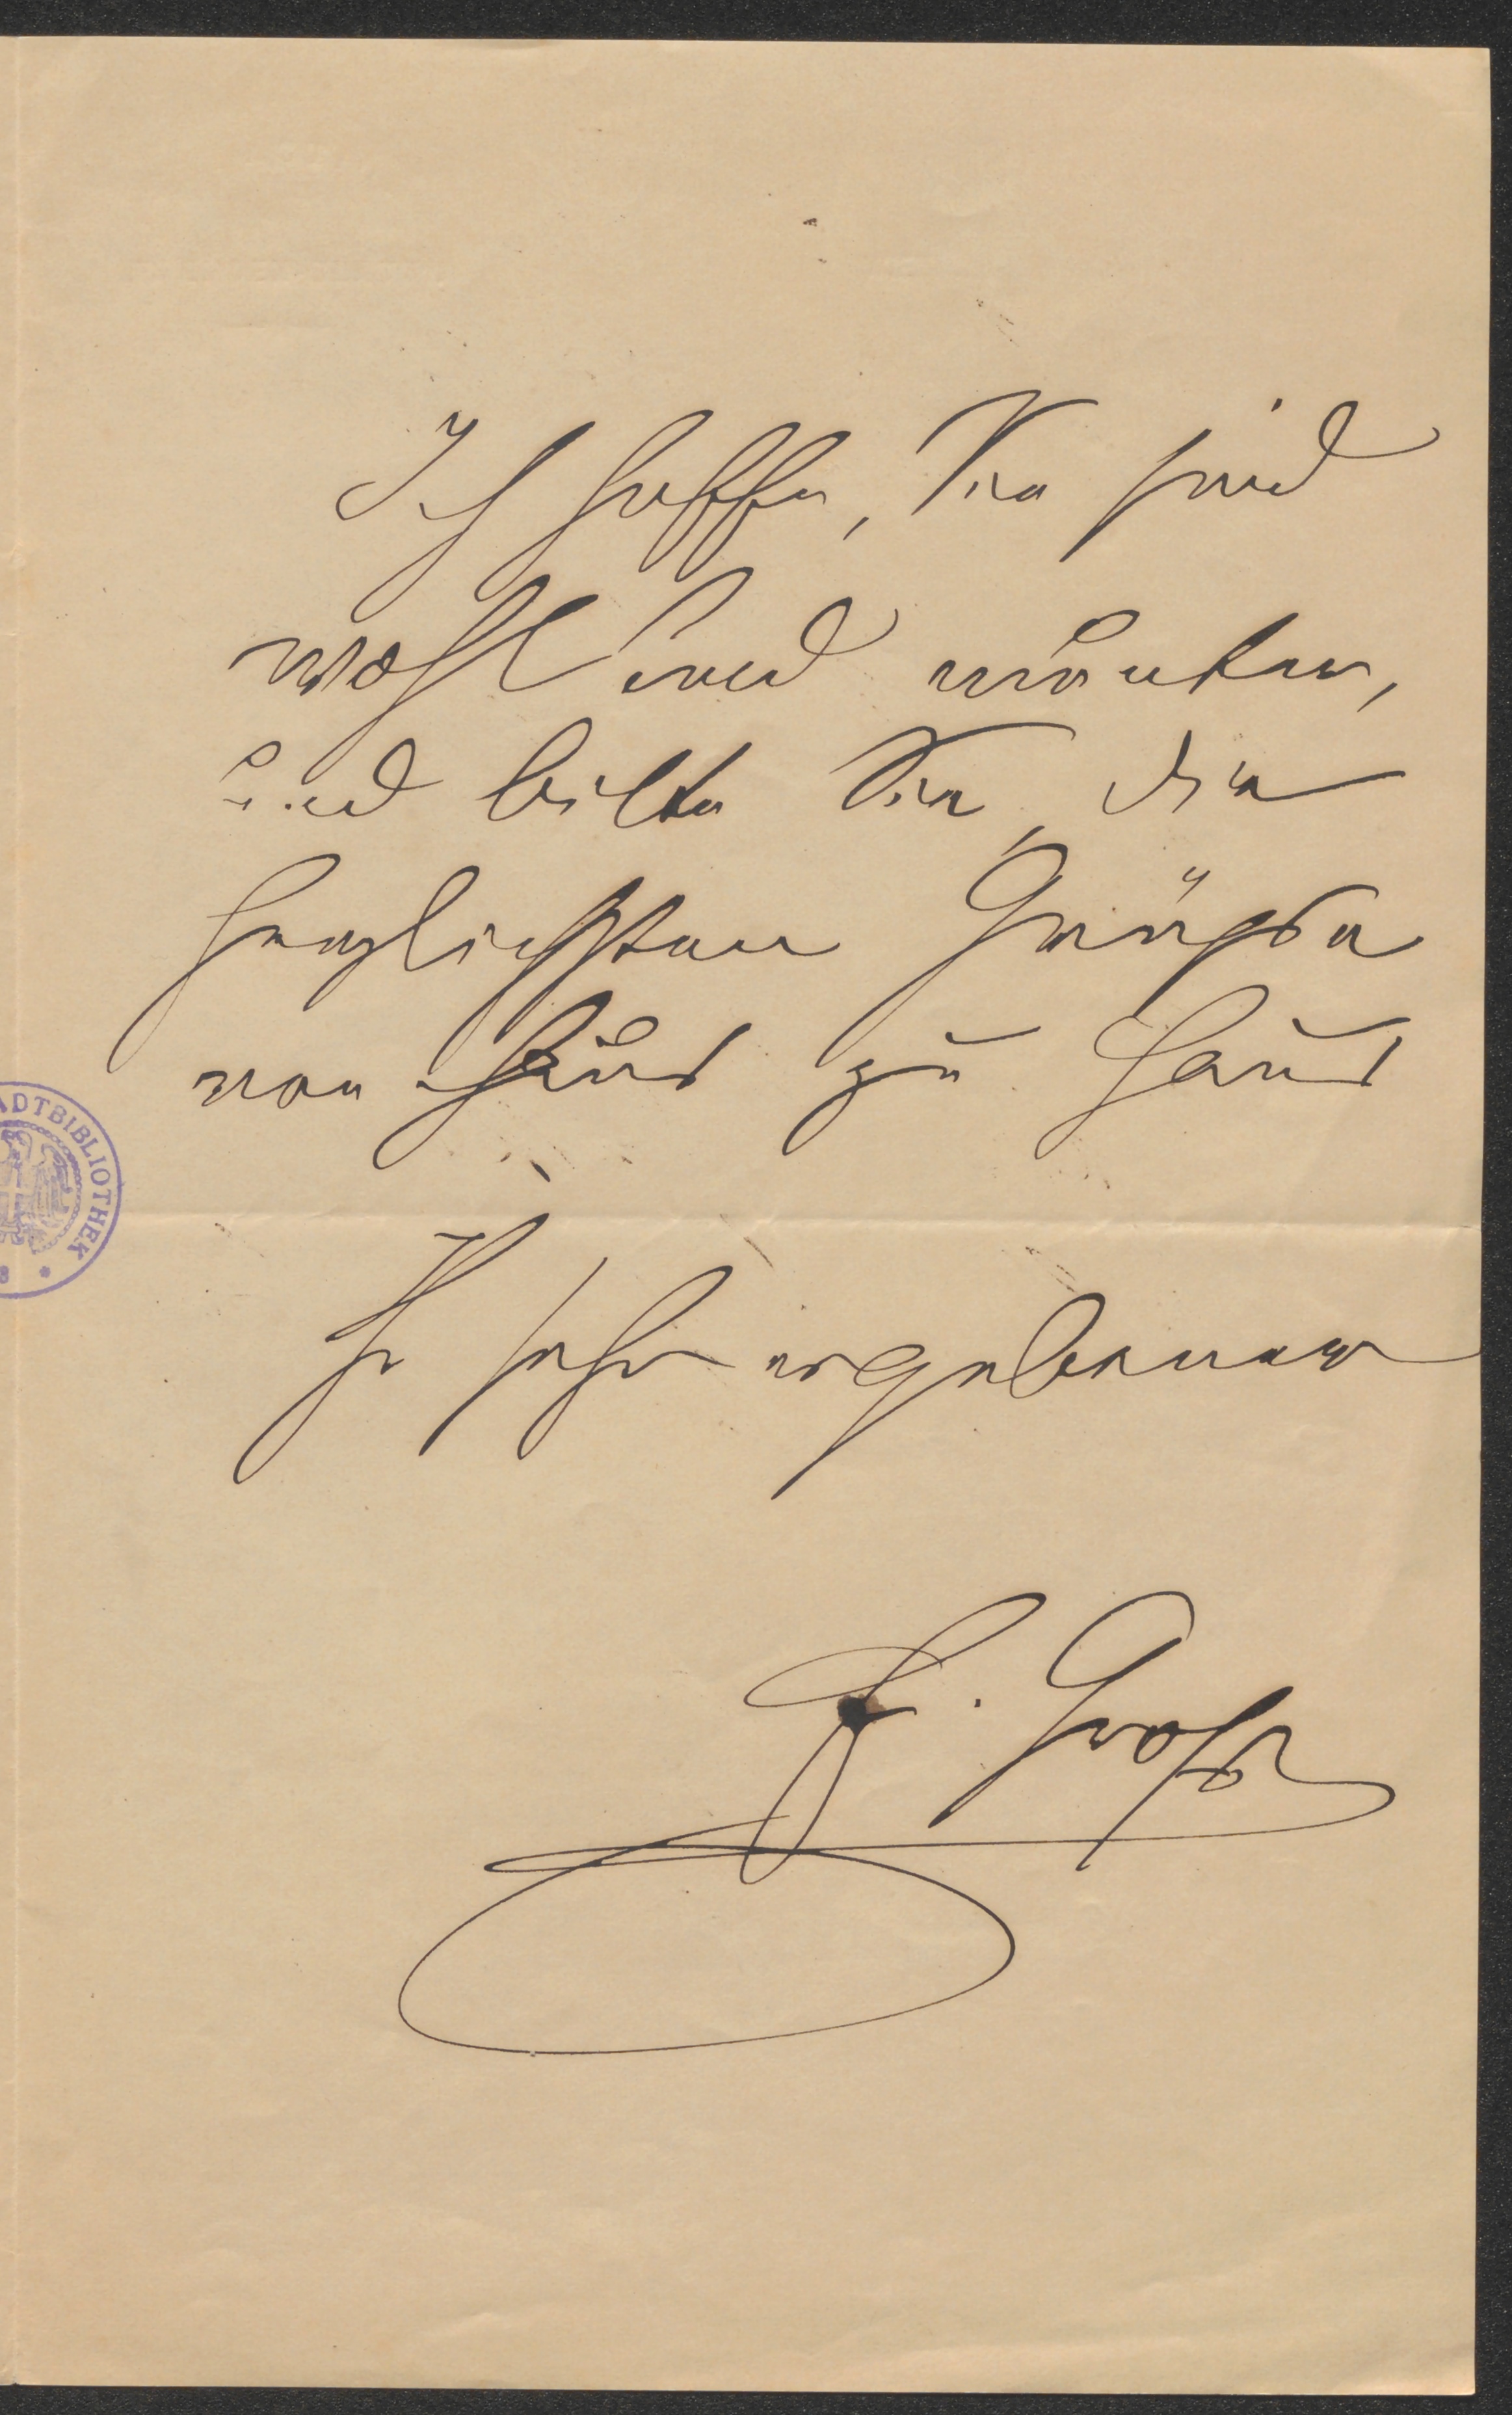 Ich hoffe, Sie sind
wohl und munter,
und bitte Sie, die
herzlichsten Grüße
von Haus zu Haus
ADTBIBLIOTHEK
8 *
Ihr sehr ergebener
F. Groß